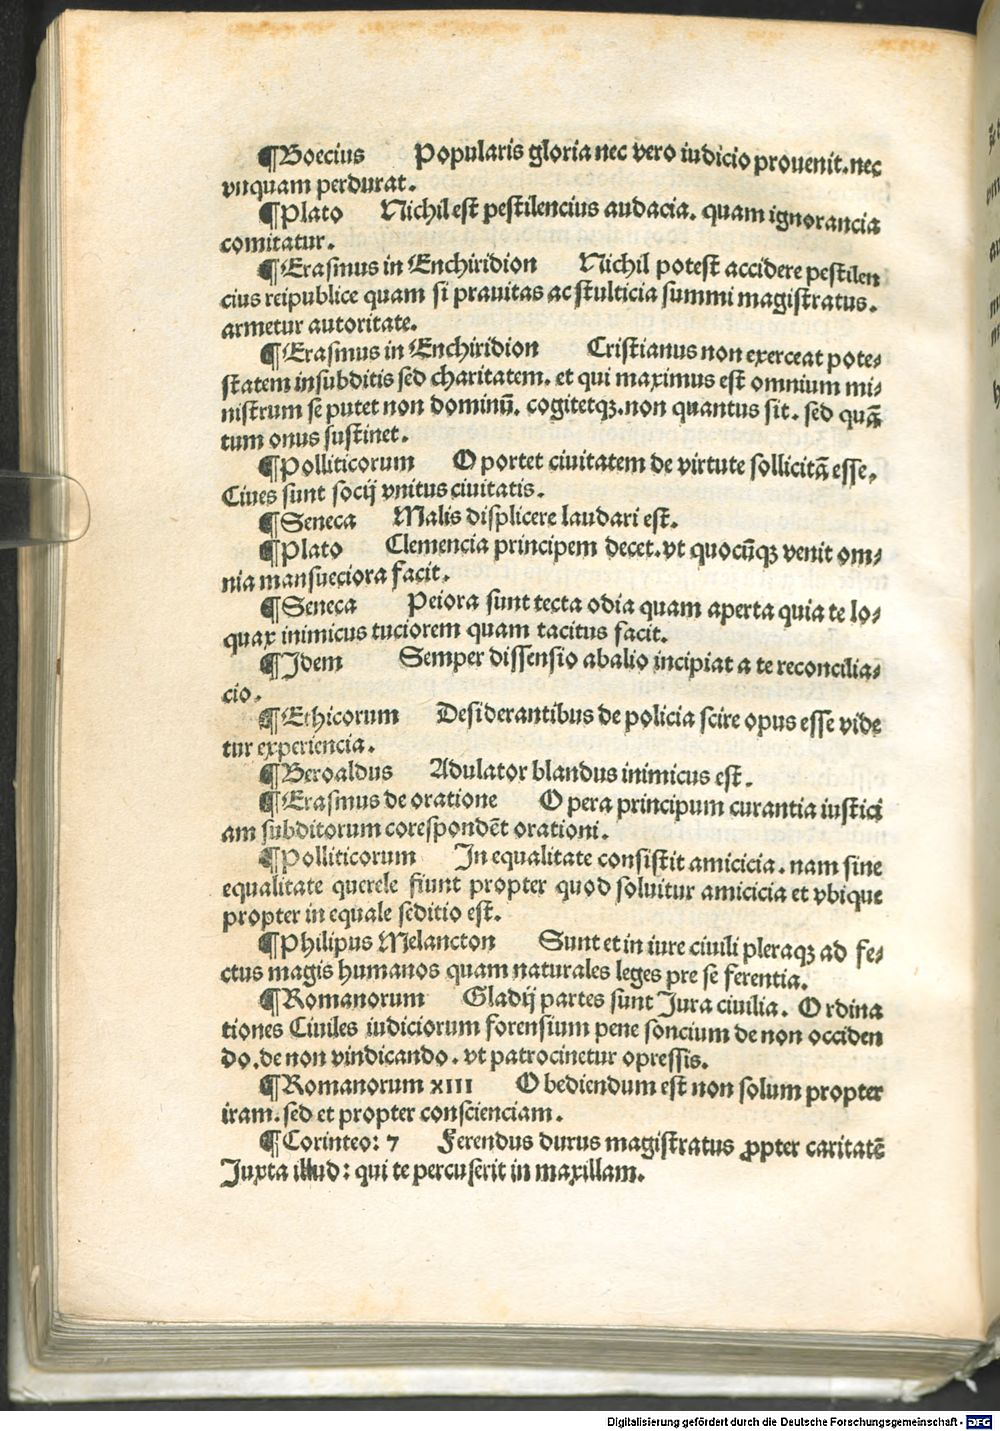 ¶Boecius Popularis gloria nec vero iudicio prouenit. nec
vnquam perdurat.
¶Plato Nichil est pestilencius audacia. quam ignorancia
comitatur.
¶Erasmus in Enchiridion Nichil potest accidere pestilen
cius reipublice quam si prauitas ac stulticia summi magistratus.
armetur autoritate.
¶Erasmus in Enchiridion Cristianus non exerceat pote⸗
statem insubditis sed charitatem. et qui maximus est omnium mi⸗
nistrum se putet non dominū. cogitetqꝫ. non quantus sit. sed quā
tum onus sustinet.
¶Polliticorum O portet ciuitatem de virtute sollicitā esse.
Ciues sunt socij vnitus ciuitatis.
¶Seneca Malis displicere laudari est.
¶Plato Clemencia principem decet. vt quocūqꝫ venit om⸗
nia mansueciora facit.
¶Seneca Peiora sunt tecta odia quam aperta quia te lo⸗
quax inimicus tuciorem quam tacitus facit.
¶Idem Semper dissensio abalio incipiat a te reconcilia⸗
cio.
¶Ethicorum Desiderantibus de policia scire opus esse vide
tur experiencia.
¶Beroaldus Adulator blandus inimicus est.
¶Erasmus de oratione O pera principum curantia iustici
am subditorum corespondēt orationi.
¶Polliticorum In equalitate consistit amicicia. nam sine
equalitate querele fiunt propter quod soluitur amicicia et vbique
propter in equale seditio est.
¶Philipus Melancton Sunt et in iure ciuili pleraqꝫ ad fe⸗
ctus magis humanos quam naturales leges pre se ferentia.
¶Romanorum Gladij partes sunt Jura ciuilia. O rdina
tiones Ciuiles iudiciorum forensium pene soncium de non occiden
do. de non vindicando. vt patrocinetur opressis.
¶Romanorum XIII O bediendum est non solum propter
iram. sed et propter conscienciam.
¶Corinteo: 7 Ferendus durus magistratus ꝓpter caritatē
Juxta illud: qui te percuserit in maxillam.
Digitalisierung gefördert durch die Deutsche Forschungsgemeinschaft - DFG